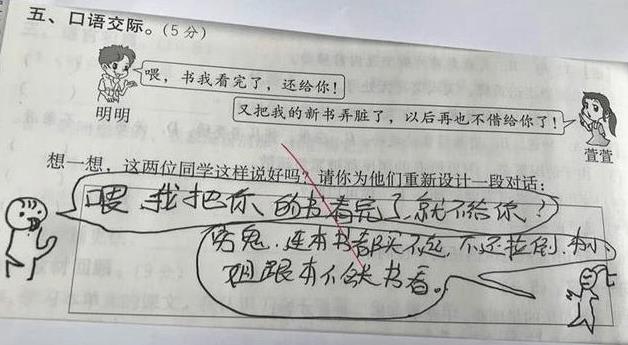 五、口语交际。(5分)
喂,书我看完了,还给你!
又把我的新书弄脏了,以后再也不借给你了!
明明
萱萱
想一想,这两位同学这样说好吗?请你为他们重新设计一段对话:
喂,我把你的书看完了,就不给你!
穷鬼,连本书都买不起,不还拉倒,本小
姐跟本不会书看。